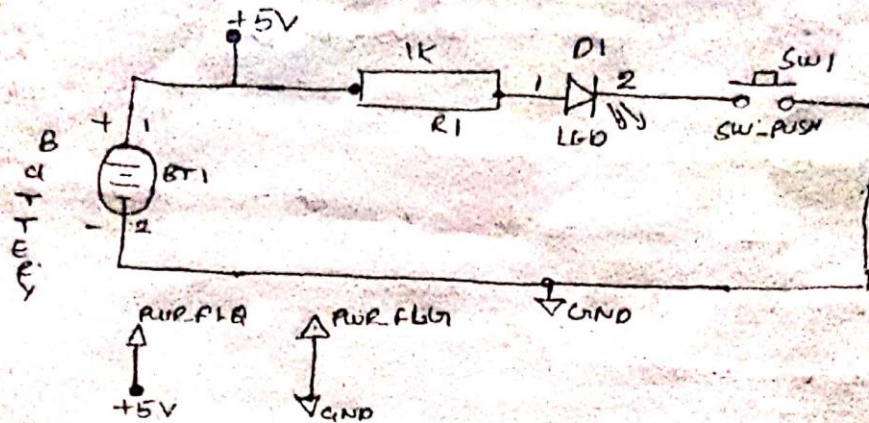 +5V
1K
R1
1
D1
2
LED
SW1
SW_PUSH
+
1
BATTERY
BT1
-
2
GND
PWR_FLG
+5V
PWR_FLG
GND